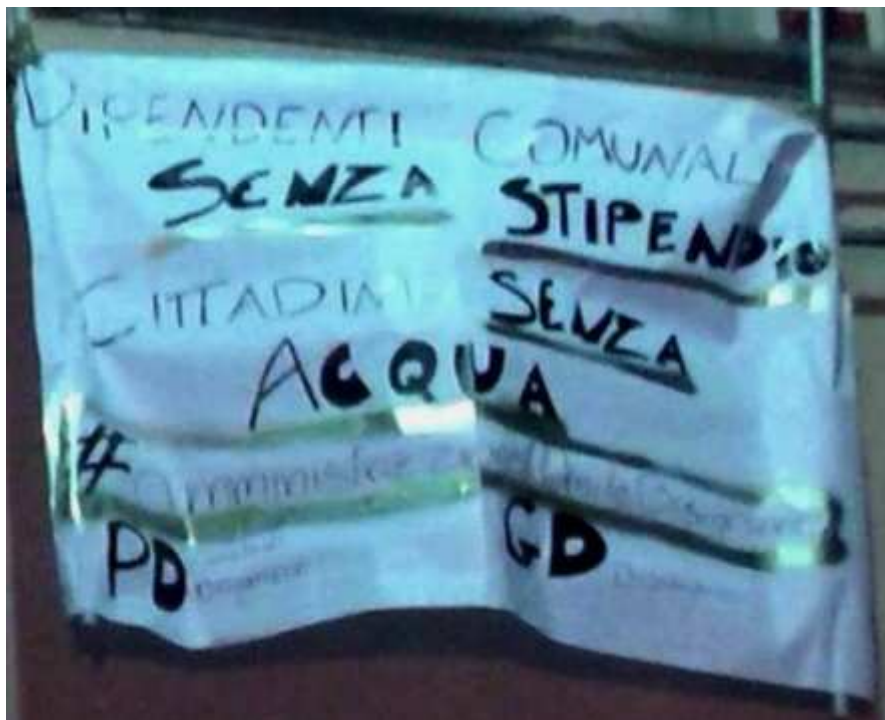 DIPENDENTI COMUNALI
SENZA STIPENDIO
CITTADINI SENZA
ACQUA
#
PD GD